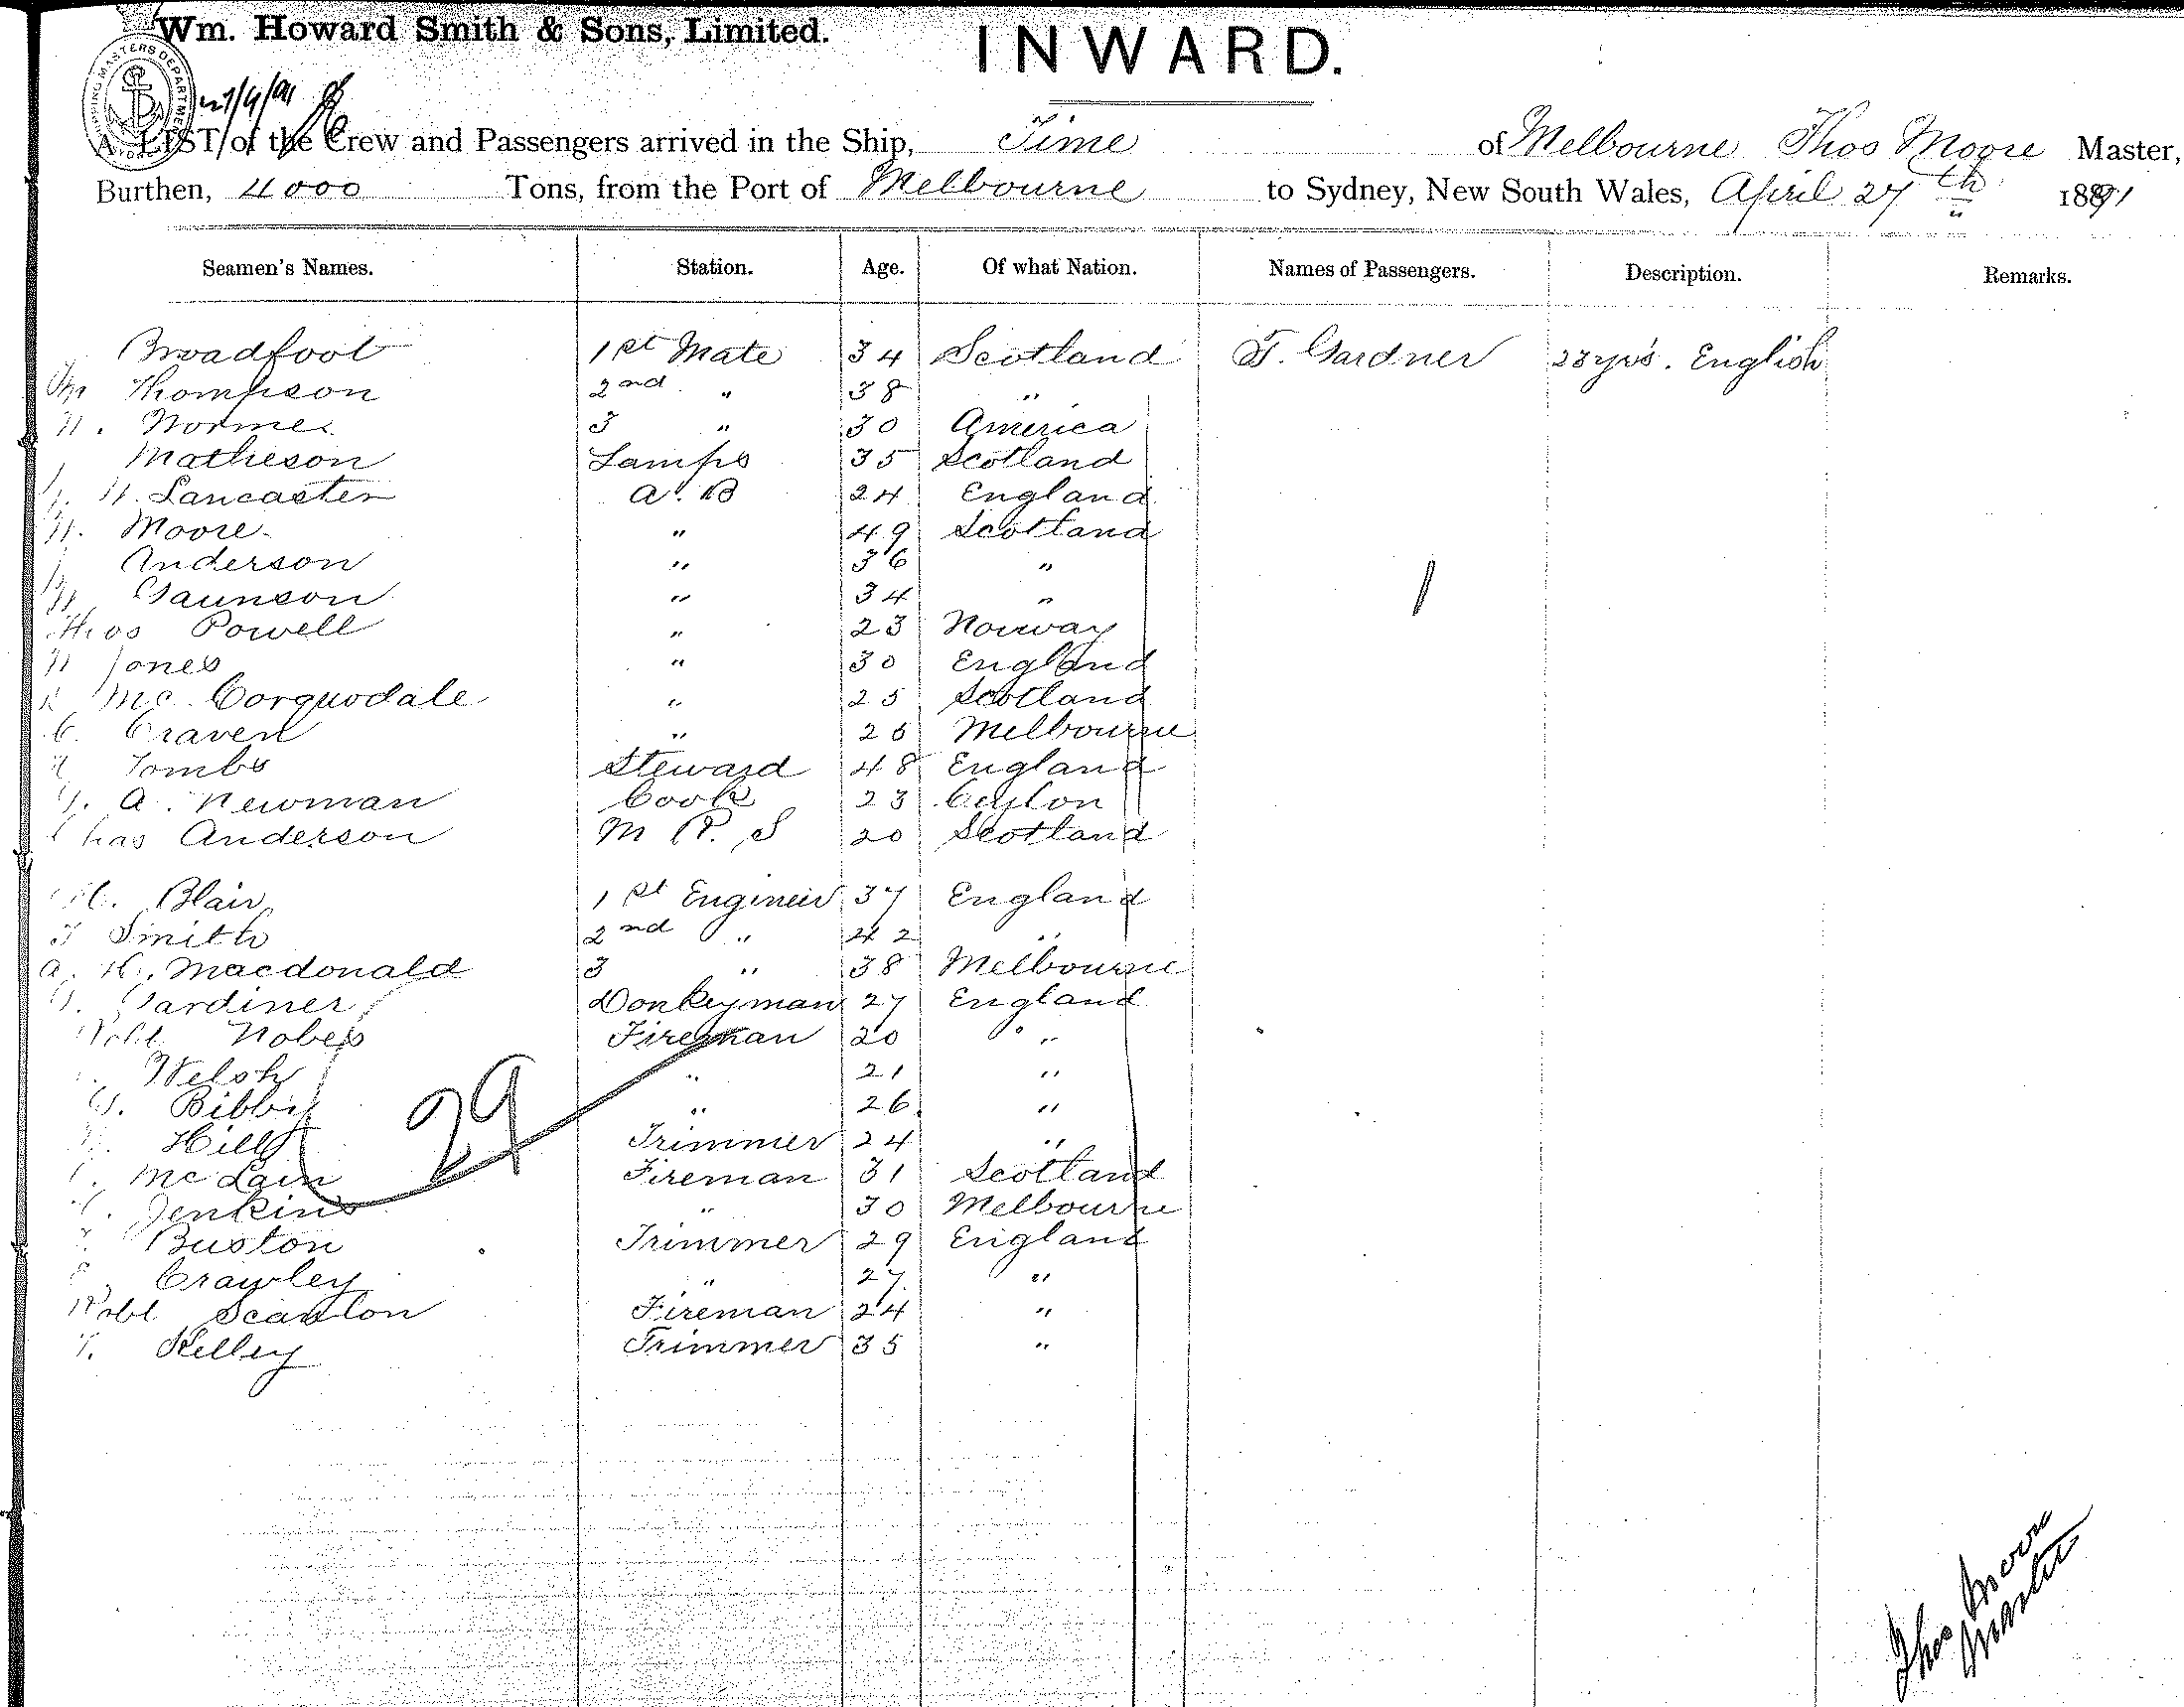 Wm. Howard Smith & Sons, Limited.
INWARD.
SHIPPING MASTERS DEPARTMENT
27/4/91
A LIST of the Crew and Passengers arrived in the Ship, Time of Melbourne Thos Moore Master,
Burthen, 4000 Tons, from the Port of Melbourne to Sydney, New South Wales, April 27th 1891
Seamen's Names. Station. Age. Of what Nation. Names of Passengers. Description. Remarks.
Broadfoot 1st Mate 34 Scotland F. Gardner 23 yrs. English
Thompson 2nd " 38 "
3 " 30 America
Matheson Lamps 35 Scotland
H. Lancaster A. B 24 England
Moore " 49 Scotland
Anderson " 36 "
Gaunson " 34 "
Thos Powell " 23 Norway
Jones " 30 England
Mc Corquodale " 25 Scotland
C. Craven " 26 Melbourne
Tombs Steward 48 England
A. Newman Cook 23 Ceylon
Chas Anderson M R. S 20 Scotland
Blair 1st Engineer 37 England
Smith 2nd " 42 "
A. K. Macdonald 3 " 38 Melbourne
Gardiner Donkeyman 27 England
Robt Nobes Fireman 20 "
Welsh " 21 "
Bibby " 26 "
Hill Trimmer 24 "
Mc Lain Fireman 31 Scotland
Jenkins " 30 Melbourne
Buston Trimmer 29 England
Crawley " 27 "
Robt Scanlon Fireman 24 "
Kelley Trimmer 35 "
29
1
Thos Moore
Master